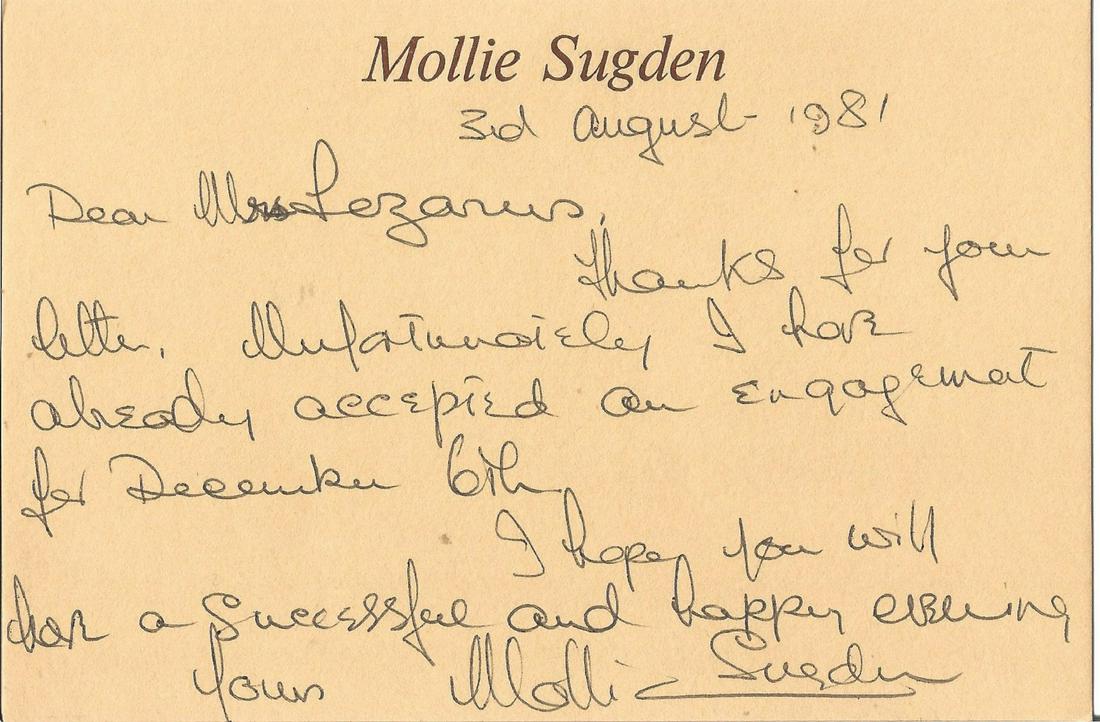 Mollie Sugden
3rd August 1981
Dear Mrs Lezarus,
Thanks for your
letter. Unfortunately I have
already accepted an engagement
for December 6th,
I hope you will
have a successful and happy evening
Yours Mollie Sugden